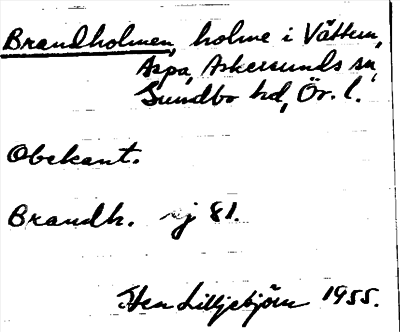 Brandholmen, holme i Vättern,
Aspa, Askersunds sn,
Sundbo hd, Ör. l.
Obekant.
Brandh. ej 81.
Sten Lilljebjörn 1955.